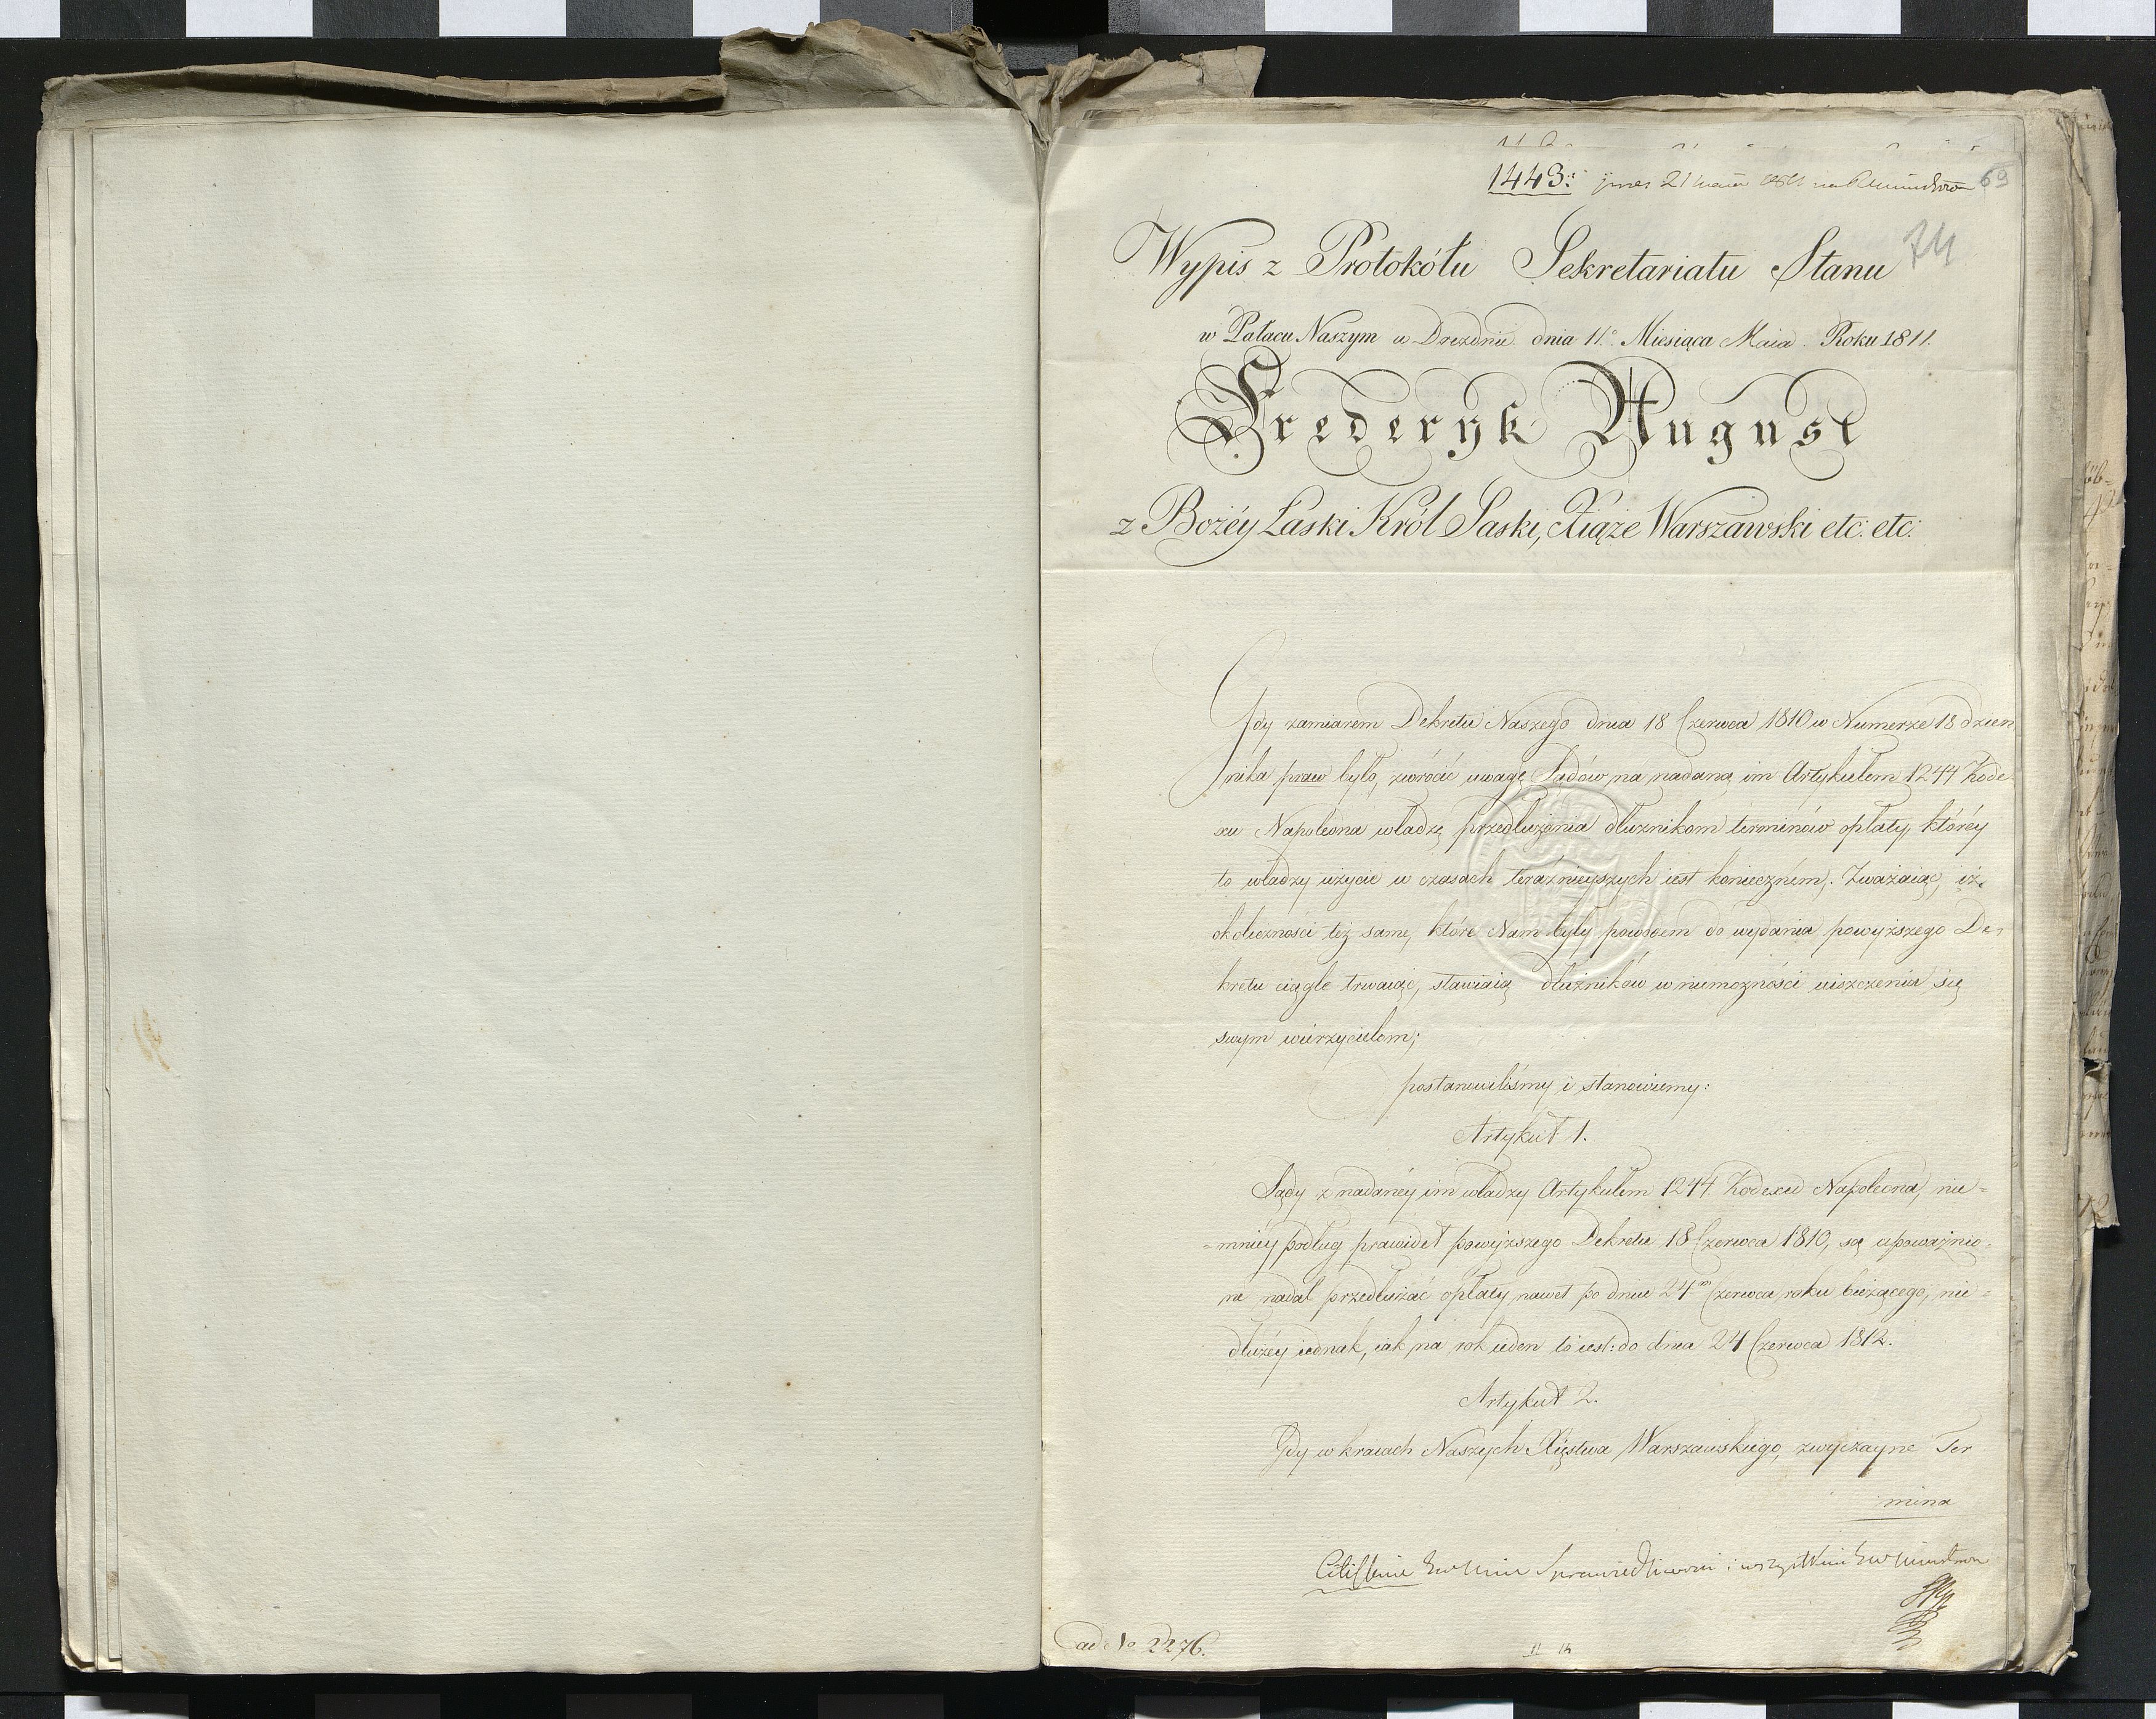 1443.
69
Wypis z Protokółu Sekretariatu Stanu
74
w Pałacu Naszym w Dreźnie dnia 11° Miesiąca Maia Roku 1811.
Frederyk August
z Bożéy Łaski Król Saski, Xiąże Warszawski etc: etc:
Gdy zamiarem Dekretu Naszego dnia 18 Czerwca 1810 w Numerze 18 dzien
nika praw było, zwrócić uwagę Sądów na nadaną im Artykułem 1244 Kode
xu Napoleona władzę przedłużania dłużnikom terminów opłaty, któréy
to władzy użycie w czasach teraźnieyszych iest konieczném. Zważaiąc, iż
okoliczności też same, które Nam były powodem do wydania powyższego De-
kretu ciągle trwaiąc, stawiaią dłużników w niemożności uiszczenia się
swym wierzycielom;
postanowiliśmy i stanowiemy:
Artykuł 1.
Sądy z nadanéy im władzy Artykułem 1244. Kodexu Napoleona, nie=
=mniéy podług prawideł powyższego Dekretu 18 Czerwca 1810, są upoważnio
ne nadal przedłużać opłaty nawet po dniu 24m Czerwca roku bieżącego, nie=
dłużéy iednak, iak na rok ieden to iest: do dnia 24 Czerwca 1812.
Artykuł 2.
Gdy w kraiach Naszych Xięstwa Warszawskiego, zwyczayne Ter
mina
Sprawiedliwości i wszystkim
ad No 2276.